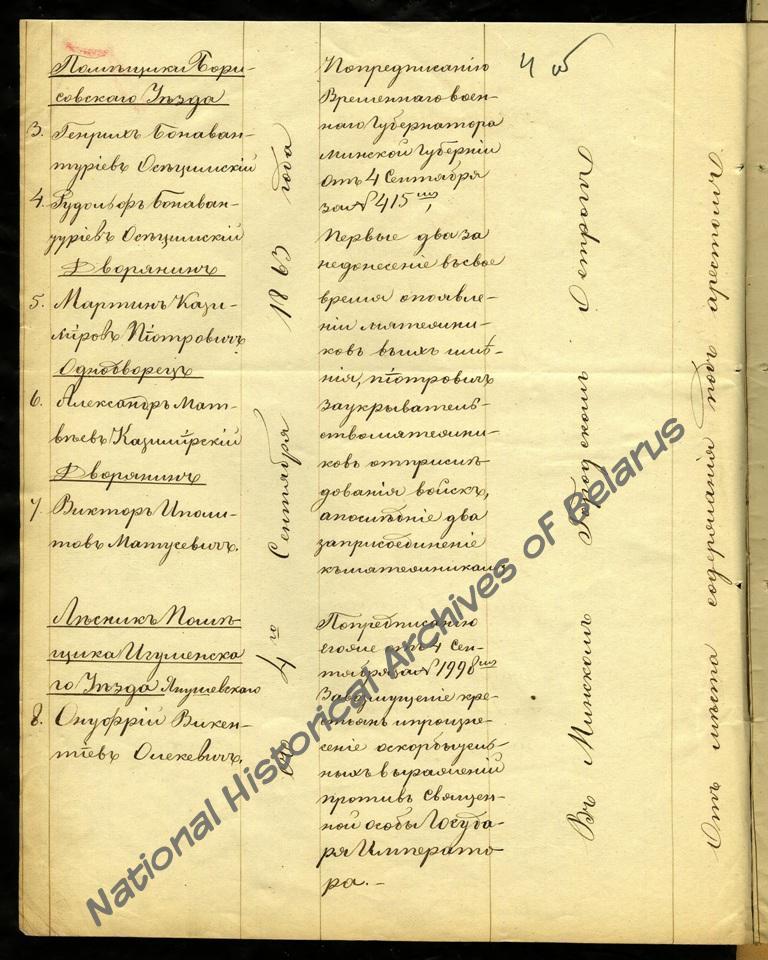 Помѣщики Бори-
совскаго Уѣзда
3. Генрихъ Бонаван-
туріевъ Осѣцимскій
4. Рудольфъ Бонаван-
туріевъ Осѣцимскій
Дворянинъ
5. Мартинъ Кази-
міровъ Піотровичъ
Однодворецъ
6. Александръ Мат-
вѣевъ Казимірскій
Дворянинъ
7. Викторъ Иполи-
товъ Матусевичъ.
Лѣсникъ Помѣ-
щика Игуменска-
го Уѣзда
8. Онуфрій Викен-
тіевъ Олекевичъ.
4го Сентября 1863 года
По предписанію
Временнаго воен-
наго Губернатора
Минской Губерніи
отъ 4 Сентября
за № 415
Первые два за
недонесеніе въ свое
время о появле-
ніи мятежни-
ковъ въ ихъ имѣ-
нія, Піотровичъ
за укрыватель-
ство мятежни-
ковъ отъ
дованія войскъ,
а послѣдніе два
за присоединеніе
къ мятежникамъ
По предписанію
его же отъ 4 Сен-
тября за № 1998
За возмущеніе кре-
стьянъ и произне-
сеніе оскорбитель-
ныхъ выраженій
противъ Священ-
ной особы Госуда-
ря Императо-
ра.-
4 об
Въ Минскомъ Городскомъ Острогѣ
Отъ мѣста содержанія подъ арестомъ
National Historical Archives of Belarus